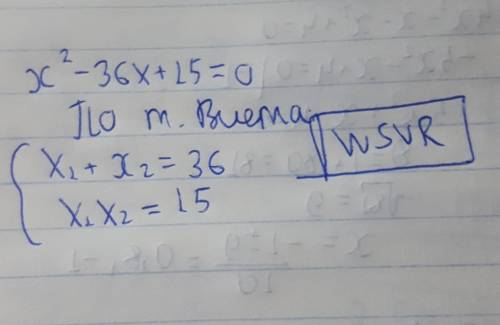 x² - 36x + 15 = 0
По т. Виета
WSVR
x₁ + x₂ = 36
x₁ x₂ = 15